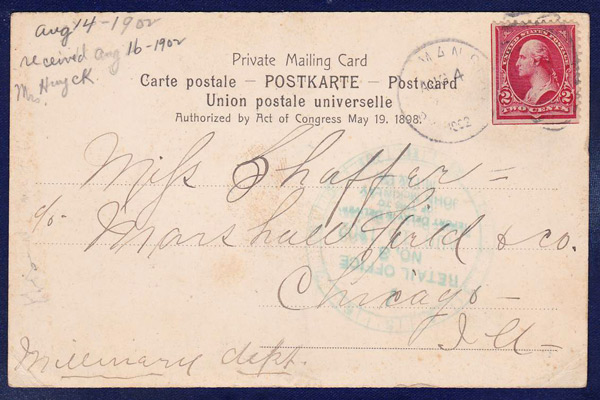 Aug 14-1902
received Aug 16-1902
Mrs. Huyck.
Private Mailing Card
Carte postale – POSTKARTE – Postcard
Union postale universelle
Authorized by Act of Congress May 19. 1898.
UNITED STATES POSTAGE
2 2
TWO CENTS
1902
Miss Shaffer =
c/o Marshall Field & co.
Chicago –
Ill –
Millinary dept.
RETAIL OFFICE
NO.